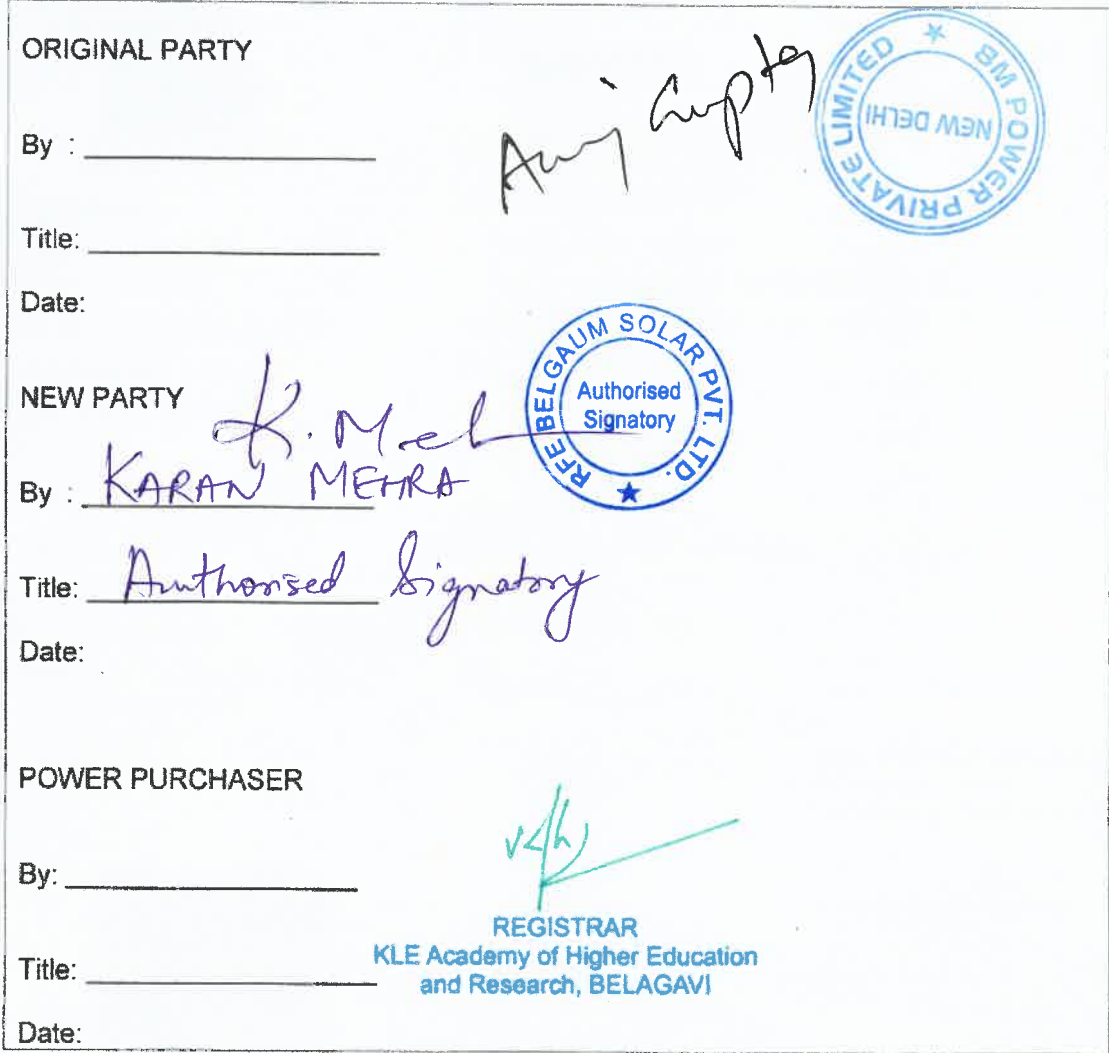 ORIGINAL PARTY
Gupta
BM POWER PRIVATE LIMITED
NEW DELHI
By :
Title:
Date:
RFE BELGAUM SOLAR PVT. LTD.
Authorised
Signatory
NEW PARTY
K. Meh
By : KARAN MEHRA
Title: Authorised Signatory
Date:
POWER PURCHASER
By:
REGISTRAR
KLE Academy of Higher Education
and Research, BELAGAVI
Title:
Date: